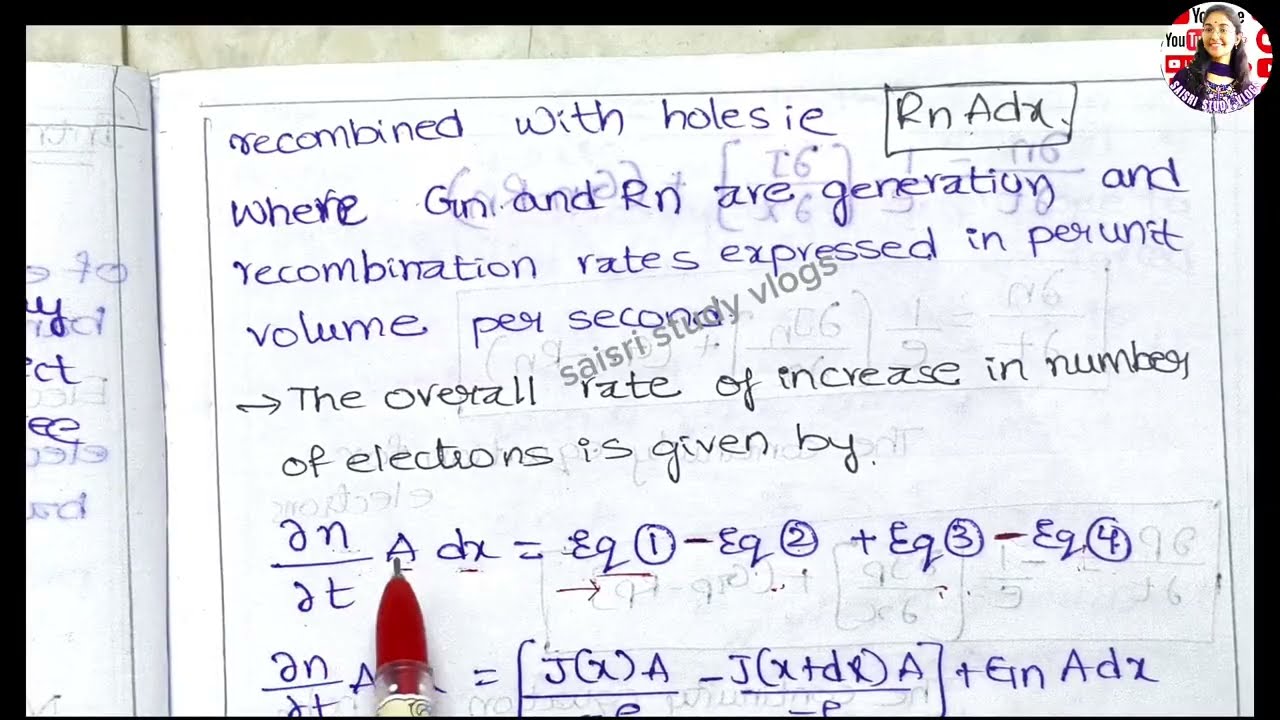 recombined with holes ie Rn Adx.
where Gn and Rn are generation and
recombination rates expressed in per unit
volume per second.
→ The overall rate of increase in number
of electrons is given by.
∂n/∂t A dx = Eq ① - Eq ② + Eq ③ - Eq ④
∂n/∂t A = [J(x)A/-e - J(x+dx)A/-e] + Gn Adx
saisri study vlogs
YouTube
SAISRI STUDY VLOGS
ect
ee